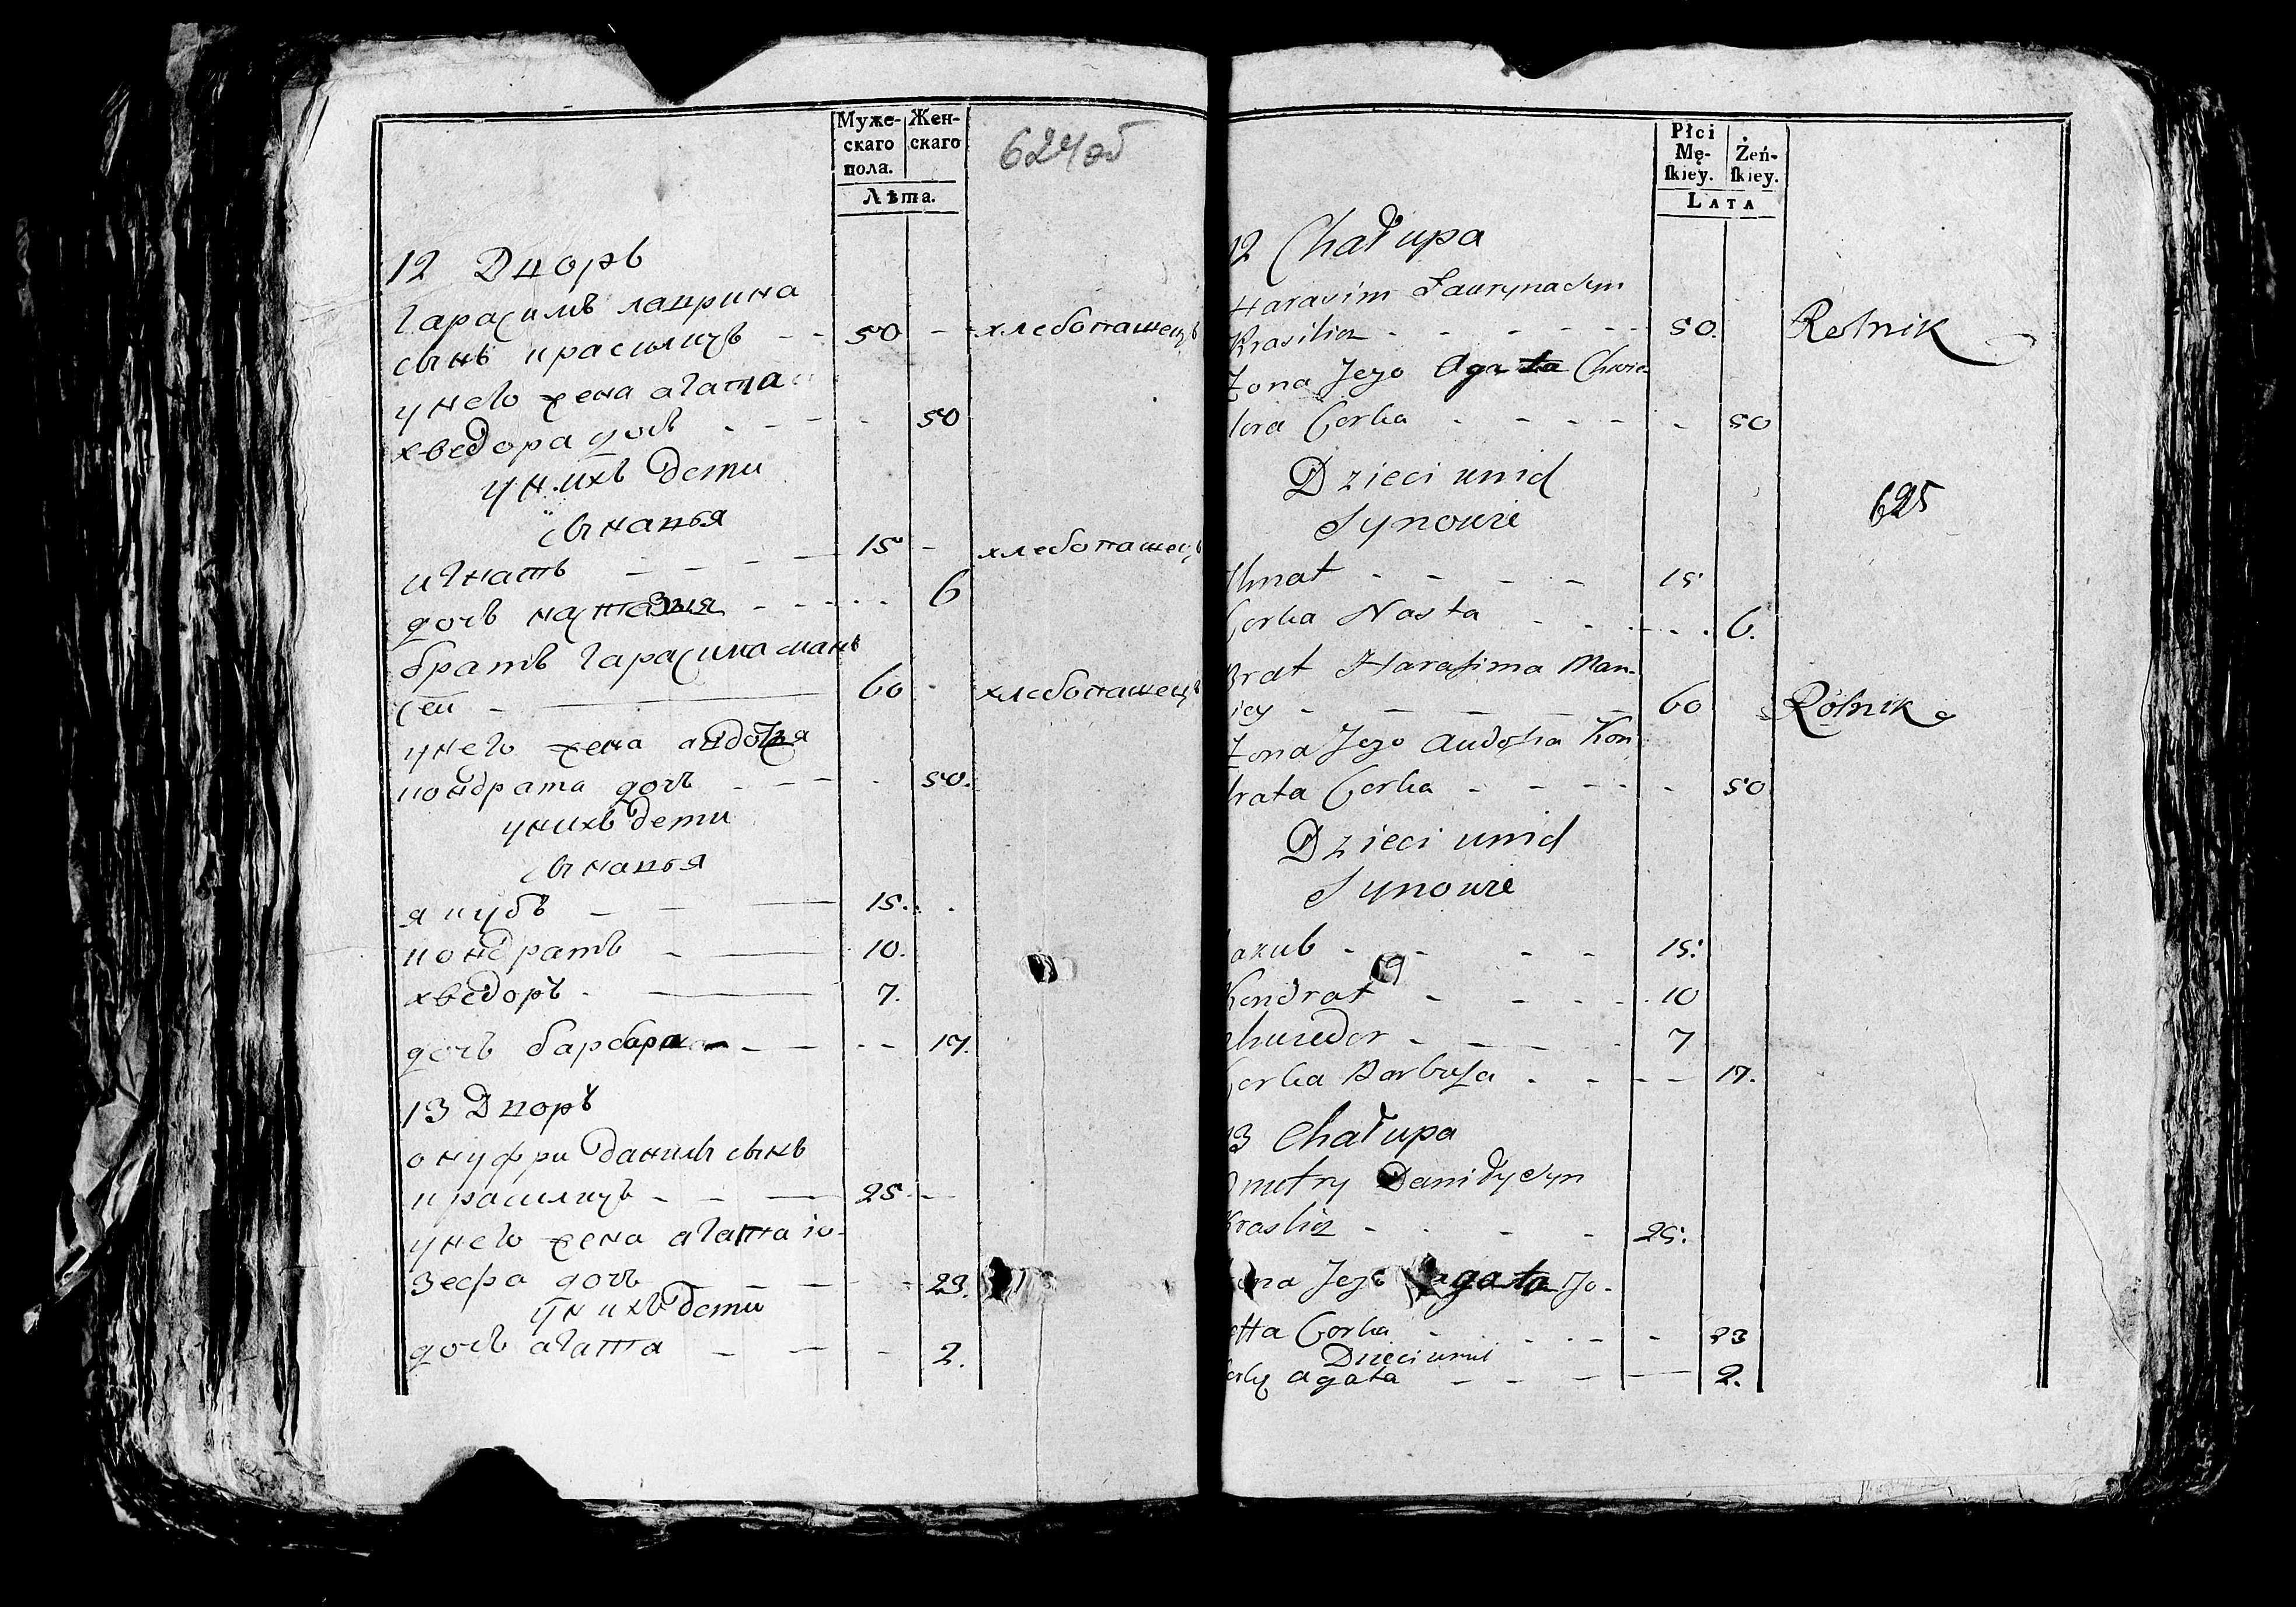 Муже-
скаго
пола.
Жен-
скаго
Лѣта.
624об
12 Дворъ
Гарасимъ лаврина
сынъ красилицъ - - 50 - хлебопашецъ
унего жена агата
хведора дочъ - - - - 50
унихъ дети
сыновья
игнатъ - - - - 15 - хлебопашецъ
дочъ настазыя - - - - - 6
братъ Гарасима мань
сей - 60 - хлебопашецъ
унего жена авдотья
кондрата дочъ - - - - 50.
унихъ дети
сыновья
якубъ - - - 15. .
кондратъ - - 10.
хведоръ - - 7.
дочъ барбара - - - - - 17.
13 Дворъ
онуфри данилы сынъ
красилицъ - - - 25 -
унего жена агата іо-
зефа дочъ - - - - 23.
унихъ дети
дочъ агата - - - 2.
Płci
Mę-
ſkiey.
Żeń-
ſkiey.
LATA
12 Chałupa
Harasim Lauryna Syn
Krasilicz - - - - - - 50. Rolnik
Żona Jego Agata Chwie-
dora Corka - - - - - 50
Dzieci unich
Synowie
625
Ihnat - - - - 15
Corka Nasta - - - - - 6.
Brat Harasima Man-
siey - - - - - 60 Rólnik
Żona Jego Audotia Kon
drata Corka - - - - - 50
Dzieci unich
Synowie
Jakub - - - - 15.
Kondrat - - - - 10
Chwedor - - - - - 7
Corka Barbara - - - - 17.
13 Chałupa
Onufry Daniły Syn
Krasilicz - - - - 25.
Żona Jego Agata Jo-
zeffa Corka - - - - - 23
Dzieci unich
Corka Agata - - - - 2.